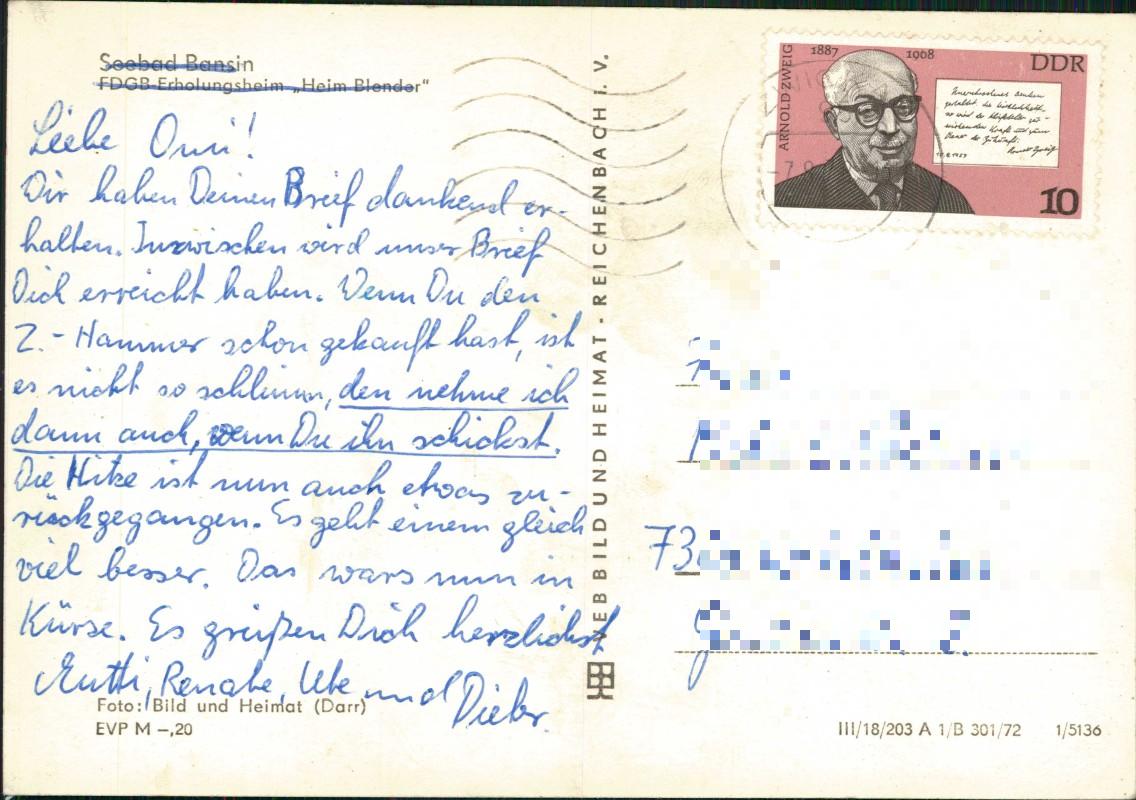 Seebad Bansin
FDGB-Erholungsheim „Heim Blender“
Liebe Omi!
Wir haben Deinen Brief dankend er-
halten. Inzwischen wird unser Brief
Dich erreicht haben. Wenn Du den
2.- Hammer schon gekauft hast, ist
es nicht so schlimm, den nehme ich
dann auch, wenn Du ihn schickst.
Die Hitze ist nun auch etwas zu-
rückgegangen. Es geht einem gleich
viel besser. Das wars nun in
Kürze. Es grüßen Dich herzlichst
Mutti, Renate, Ute und Dieter.
Foto: Bild und Heimat (Darr)
EVP M –,20
VEB BILD UND HEIMAT · REICHENBACH i. V.
ARNOLD ZWEIG
1887 1968
DDR
10
73
III/18/203 A 1/B 301/72 1/5136